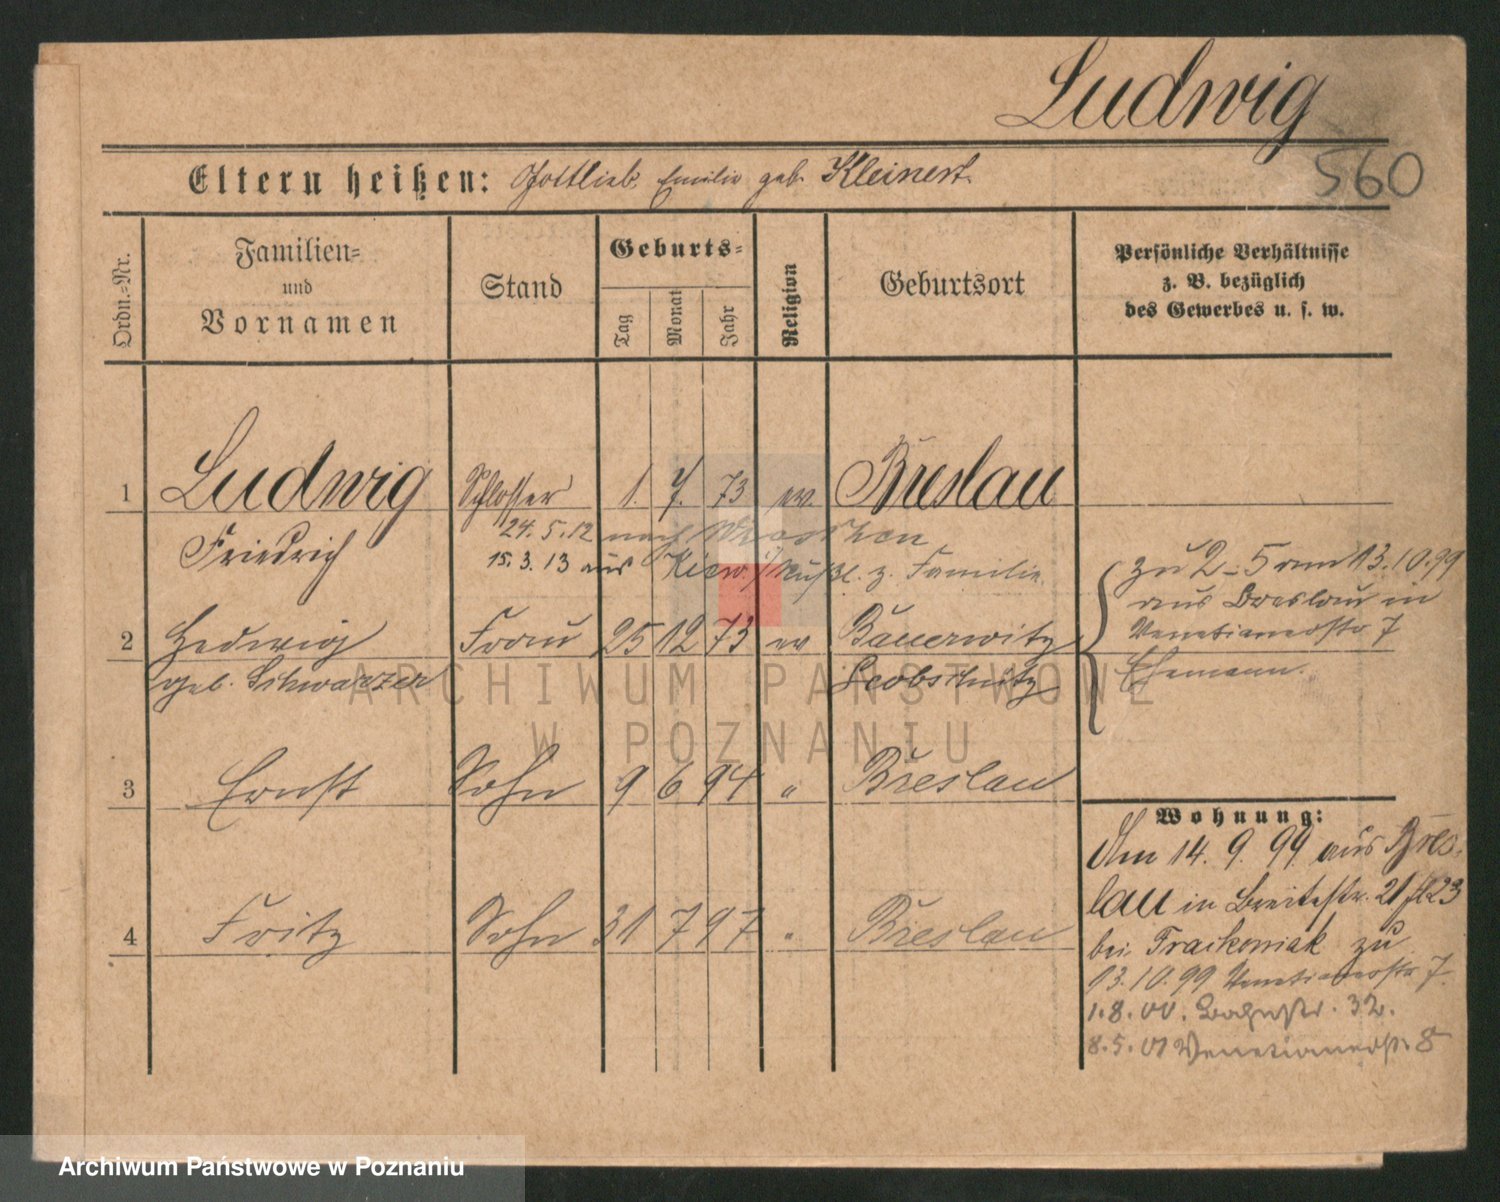 Ludwig
560
Eltern heißen: Gottlieb, Emilie geb. Kleinert
Ordn.-Nr.
Familien-
und
Vornamen
Stand
Geburts-
Tag
Monat
Jahr
Religion
Geburtsort
Persönliche Verhältnisse
z. B. bezüglich
des Gewerbes u. s. w.
1 Ludwig Schlosser 1. 7. 73 ev. Breslau
24.5.12 nach
Friedrich
15.3.13 aus Kiew i/Rußl. z. Familie
zu 2-5 am 13.10.99
aus Breslau in
Venetianerstr 7
Ehemann.
2 Hedwig Frau 25 12 73 ev Bauerwitz
geb. Schwarzer Leobschütz
3 Ernst Sohn 9 6 94 " Breslau
Wohnung:
Am 14. 9. 99 aus Bres-
lau in Breitestr. 21
bei zu
13.10.99 Venetianerstr 7.
1.8.00. Bachstr. 32.
8.5.01 Venetianerstr. 8
4 Fritz Sohn 31 7 97 " Breslau
ARCHIWUM PAŃSTWOWE
W POZNANIU
Archiwum Państwowe w Poznaniu